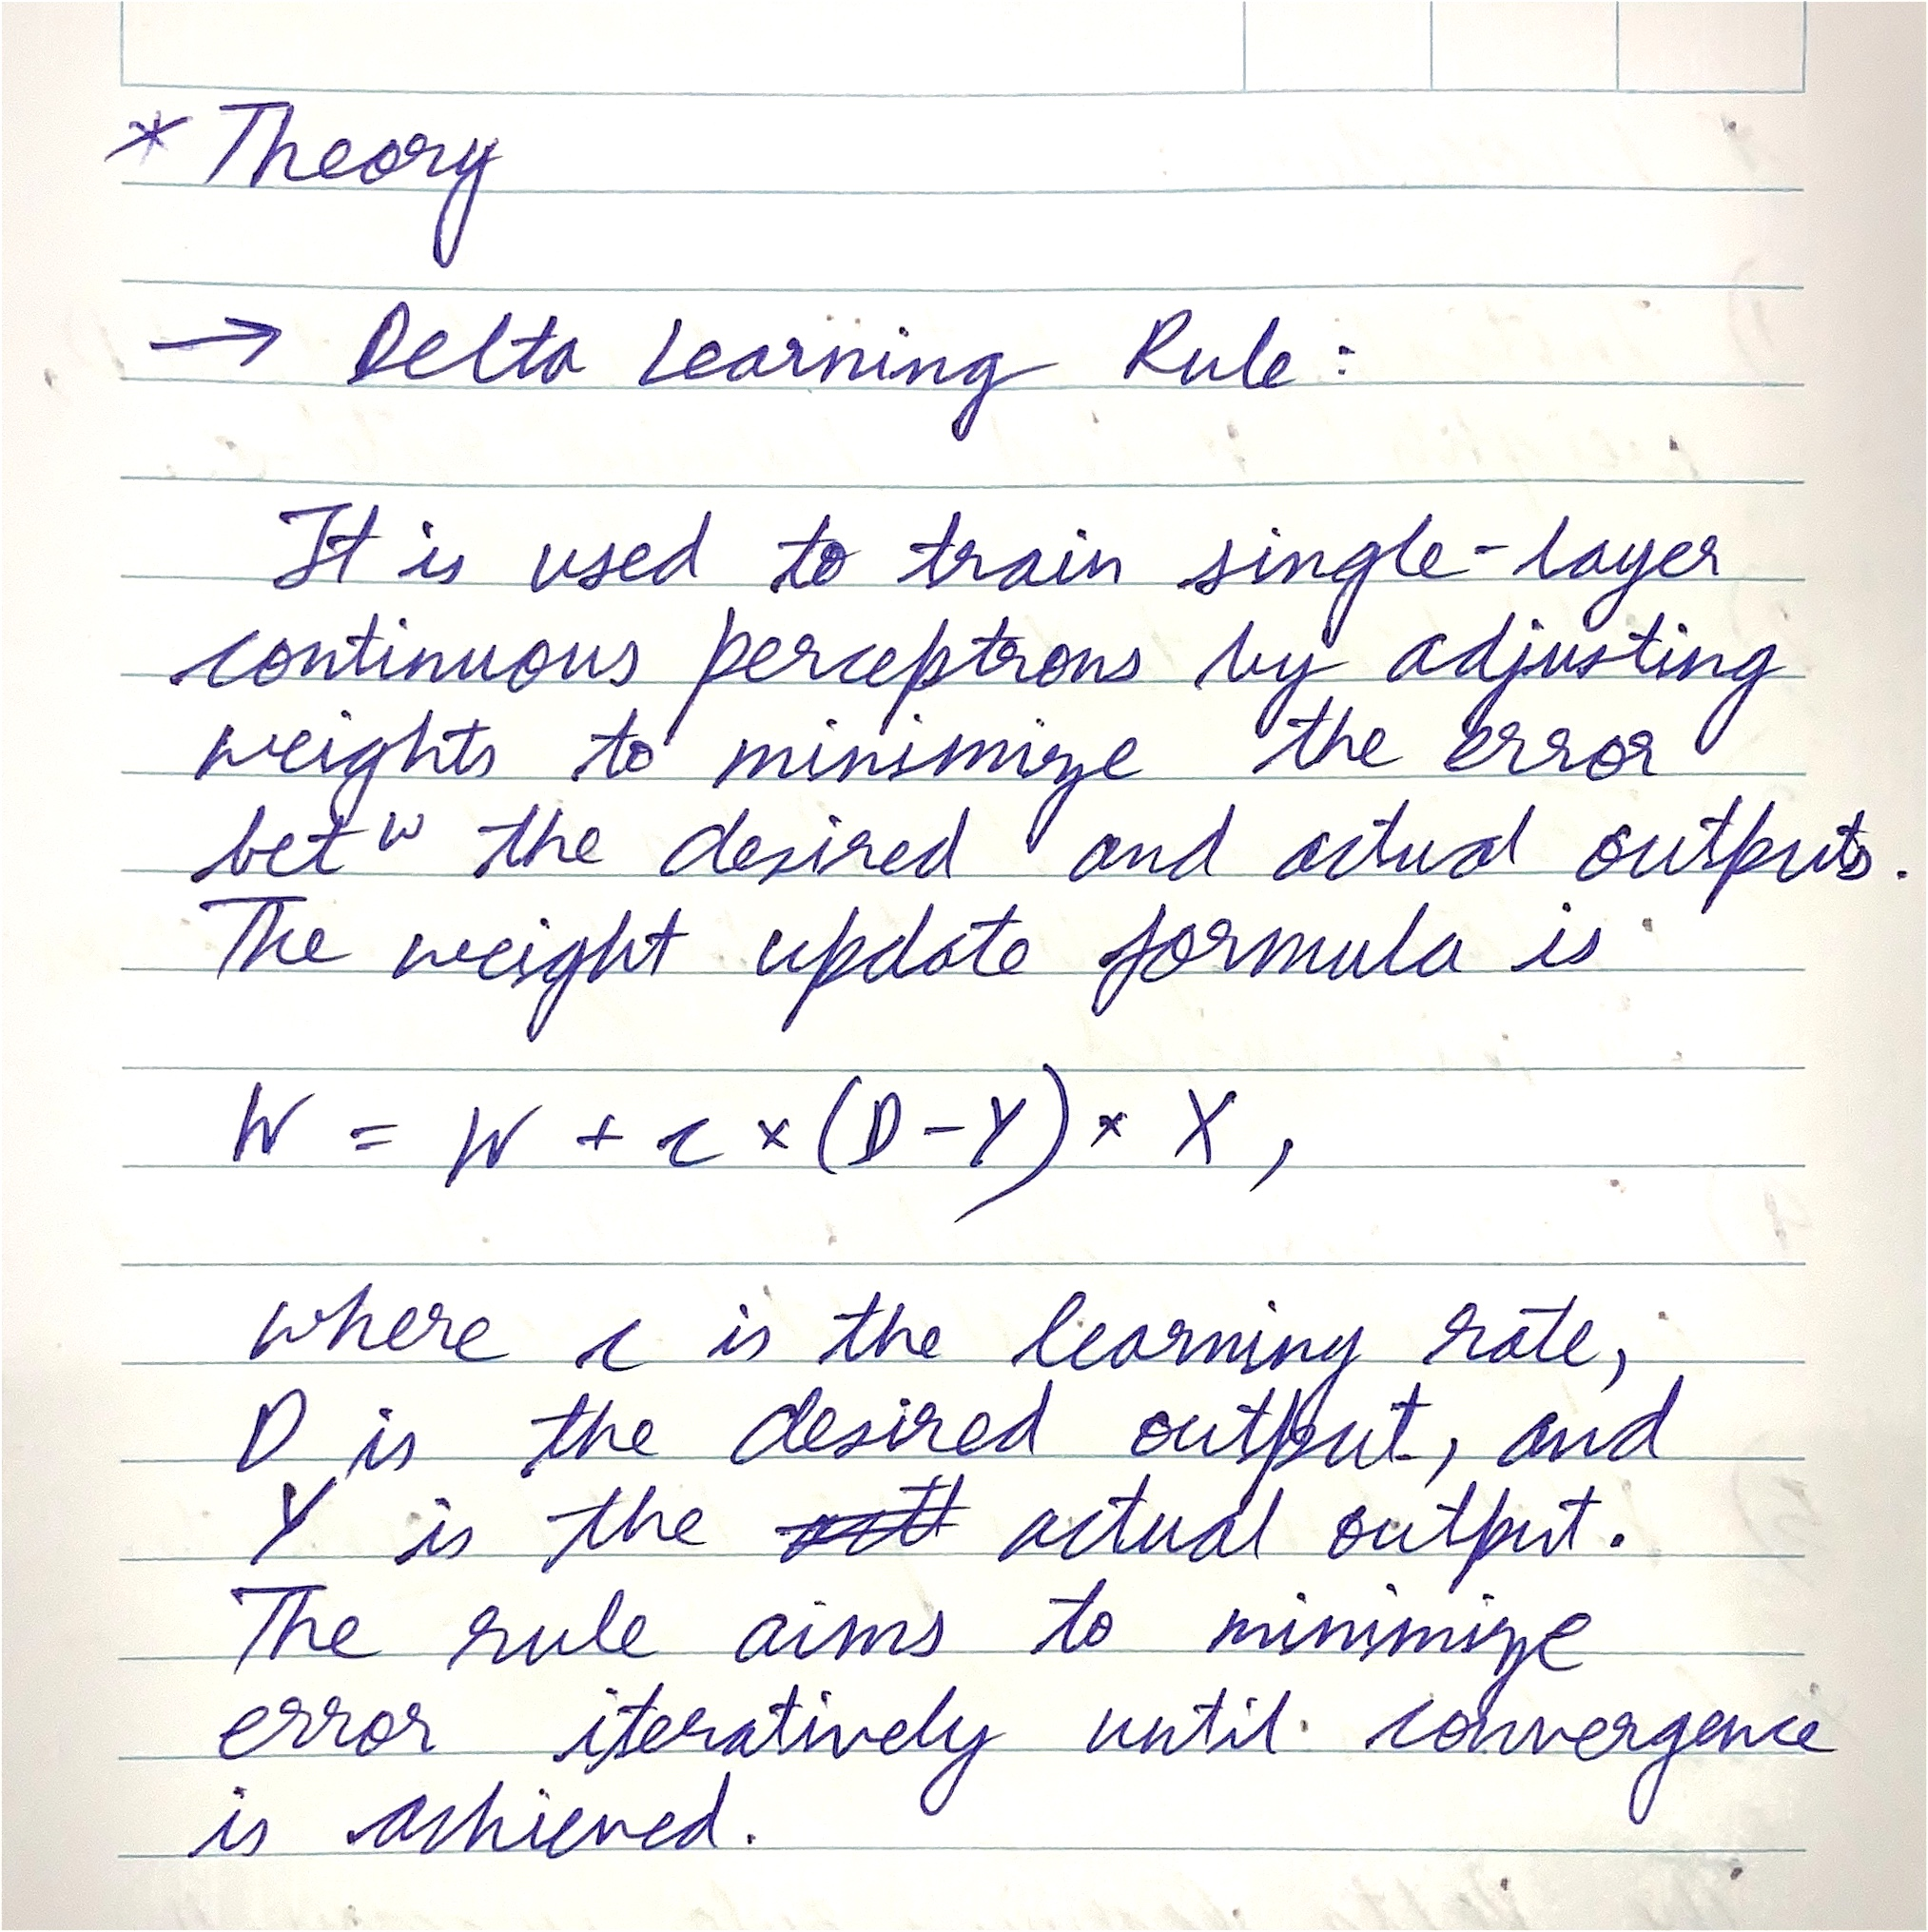 * Theory
→ Delta Learning Rule:
It is used to train single-layer
continuous perceptrons by adjusting
weights to minimize the error
betʷ the desired and actual outputs.
The weight update formula is
W = W + c × (D - Y) × X,
where c is the learning rate,
D is the desired output, and
Y is the actual output.
The rule aims to minimize
error iteratively until convergence
is achieved.